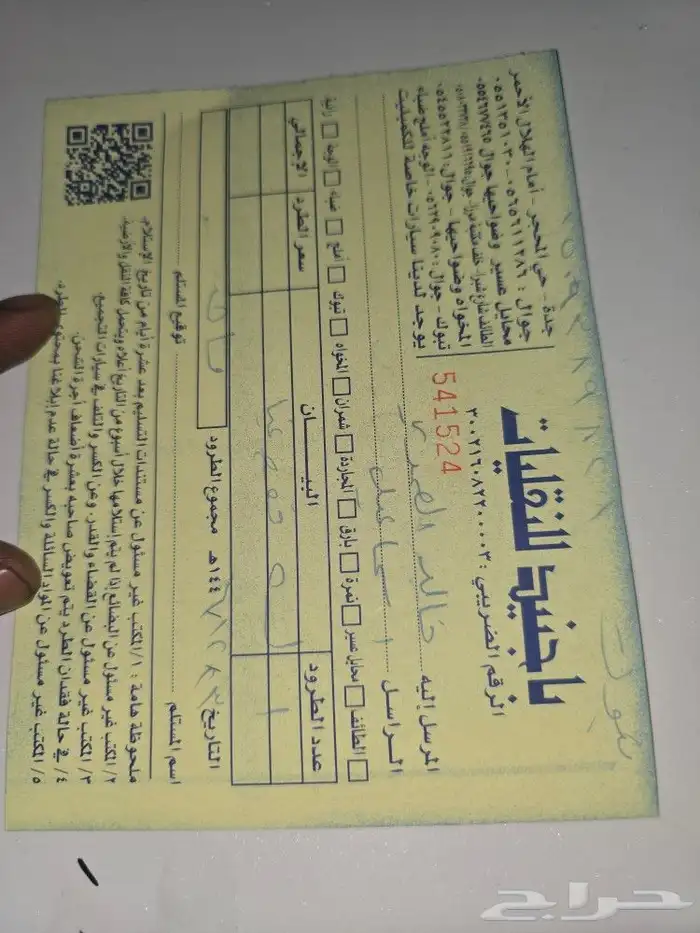 باجنيد للنقليات
الرقم الضريبي : ٣٠٠٢١٦٠٨٢٢٠٠٠٠٣
541524
جدة - حي المحجر - أمام الهلال الأحمر
جوال : ٠٥٦٥٦١١٢٨٦ - ٠٥٥١٣٥١٠٣٠
محايل عسير وضواحيها جوال ٠٥٥٤٦٧٧٤٦٥
المخواه وضواحيها - جوال : ٠٥٤٥٥٢٢٨١١
تبوك - جوال : ٠٥٦٢٩٠٩٠٨٠ - الوجه أملج ضباء
يوجد لدينا سيارات خاصة للكمبليت
تبوك
المرسل إليه خالد
الراسل
الطائف محايل عسير نمرة بارق المجاردة شمران المخواه تبوك أملج ضباء الوجه
عدد الطرود البيــــان سعر الطرد الإجمالي
١
التاريخ ١٤٤هـ مجموع الطرود
اسم المستلم توقيع المستلم
ملحوظة هامة : ١/ المكتب غير مسئول عن مستندات التسليم بعد عشرة أيام من تاريخ الإستلام.
٢/ المكتب غير مسئول عن البضائع إذا لم يتم إستلامها خلال أسبوع من التاريخ أعلاه ويتحمل كافة النقل والأرضية.
٣/ المكتب غير مسئول عن القضاء والقدر. وعن الكسر والتلف في سيارات التجميع.
٤/ في حالة فقدان الطرد يتم تعويض صاحبه بعشرة أضعاف أجرة الشحن.
٥/ المكتب غير مسئول عن المواد السائلة والكسر في حالة عدم إبلاغنا بمحتوى الطرد.
حراج